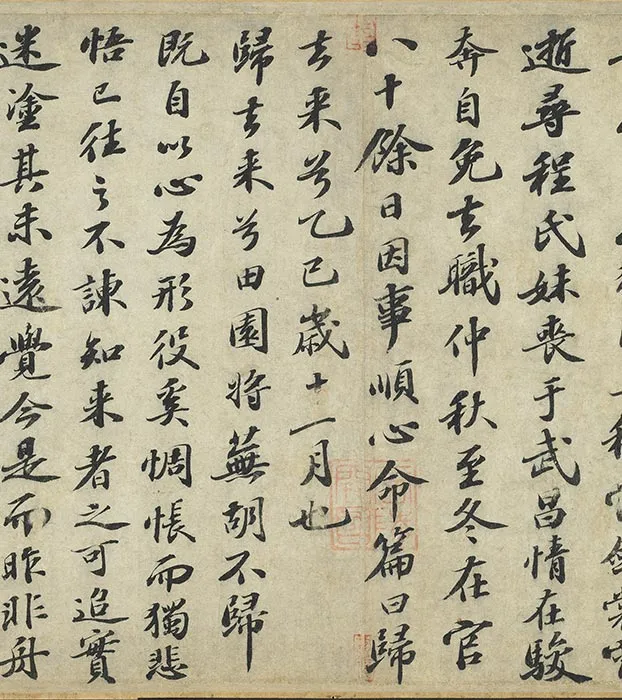 逝尋程氏妹喪于武昌情在駿
奔自免去職仲秋至冬在官
八十餘日因事順心命篇曰歸
去来兮乙巳歲十一月也
歸去来兮田園将蕪胡不歸
既自以心為形役奚惆悵而獨悲
悟已往之不諫知来者之可追實
迷塗其未遠覺今是而昨非舟